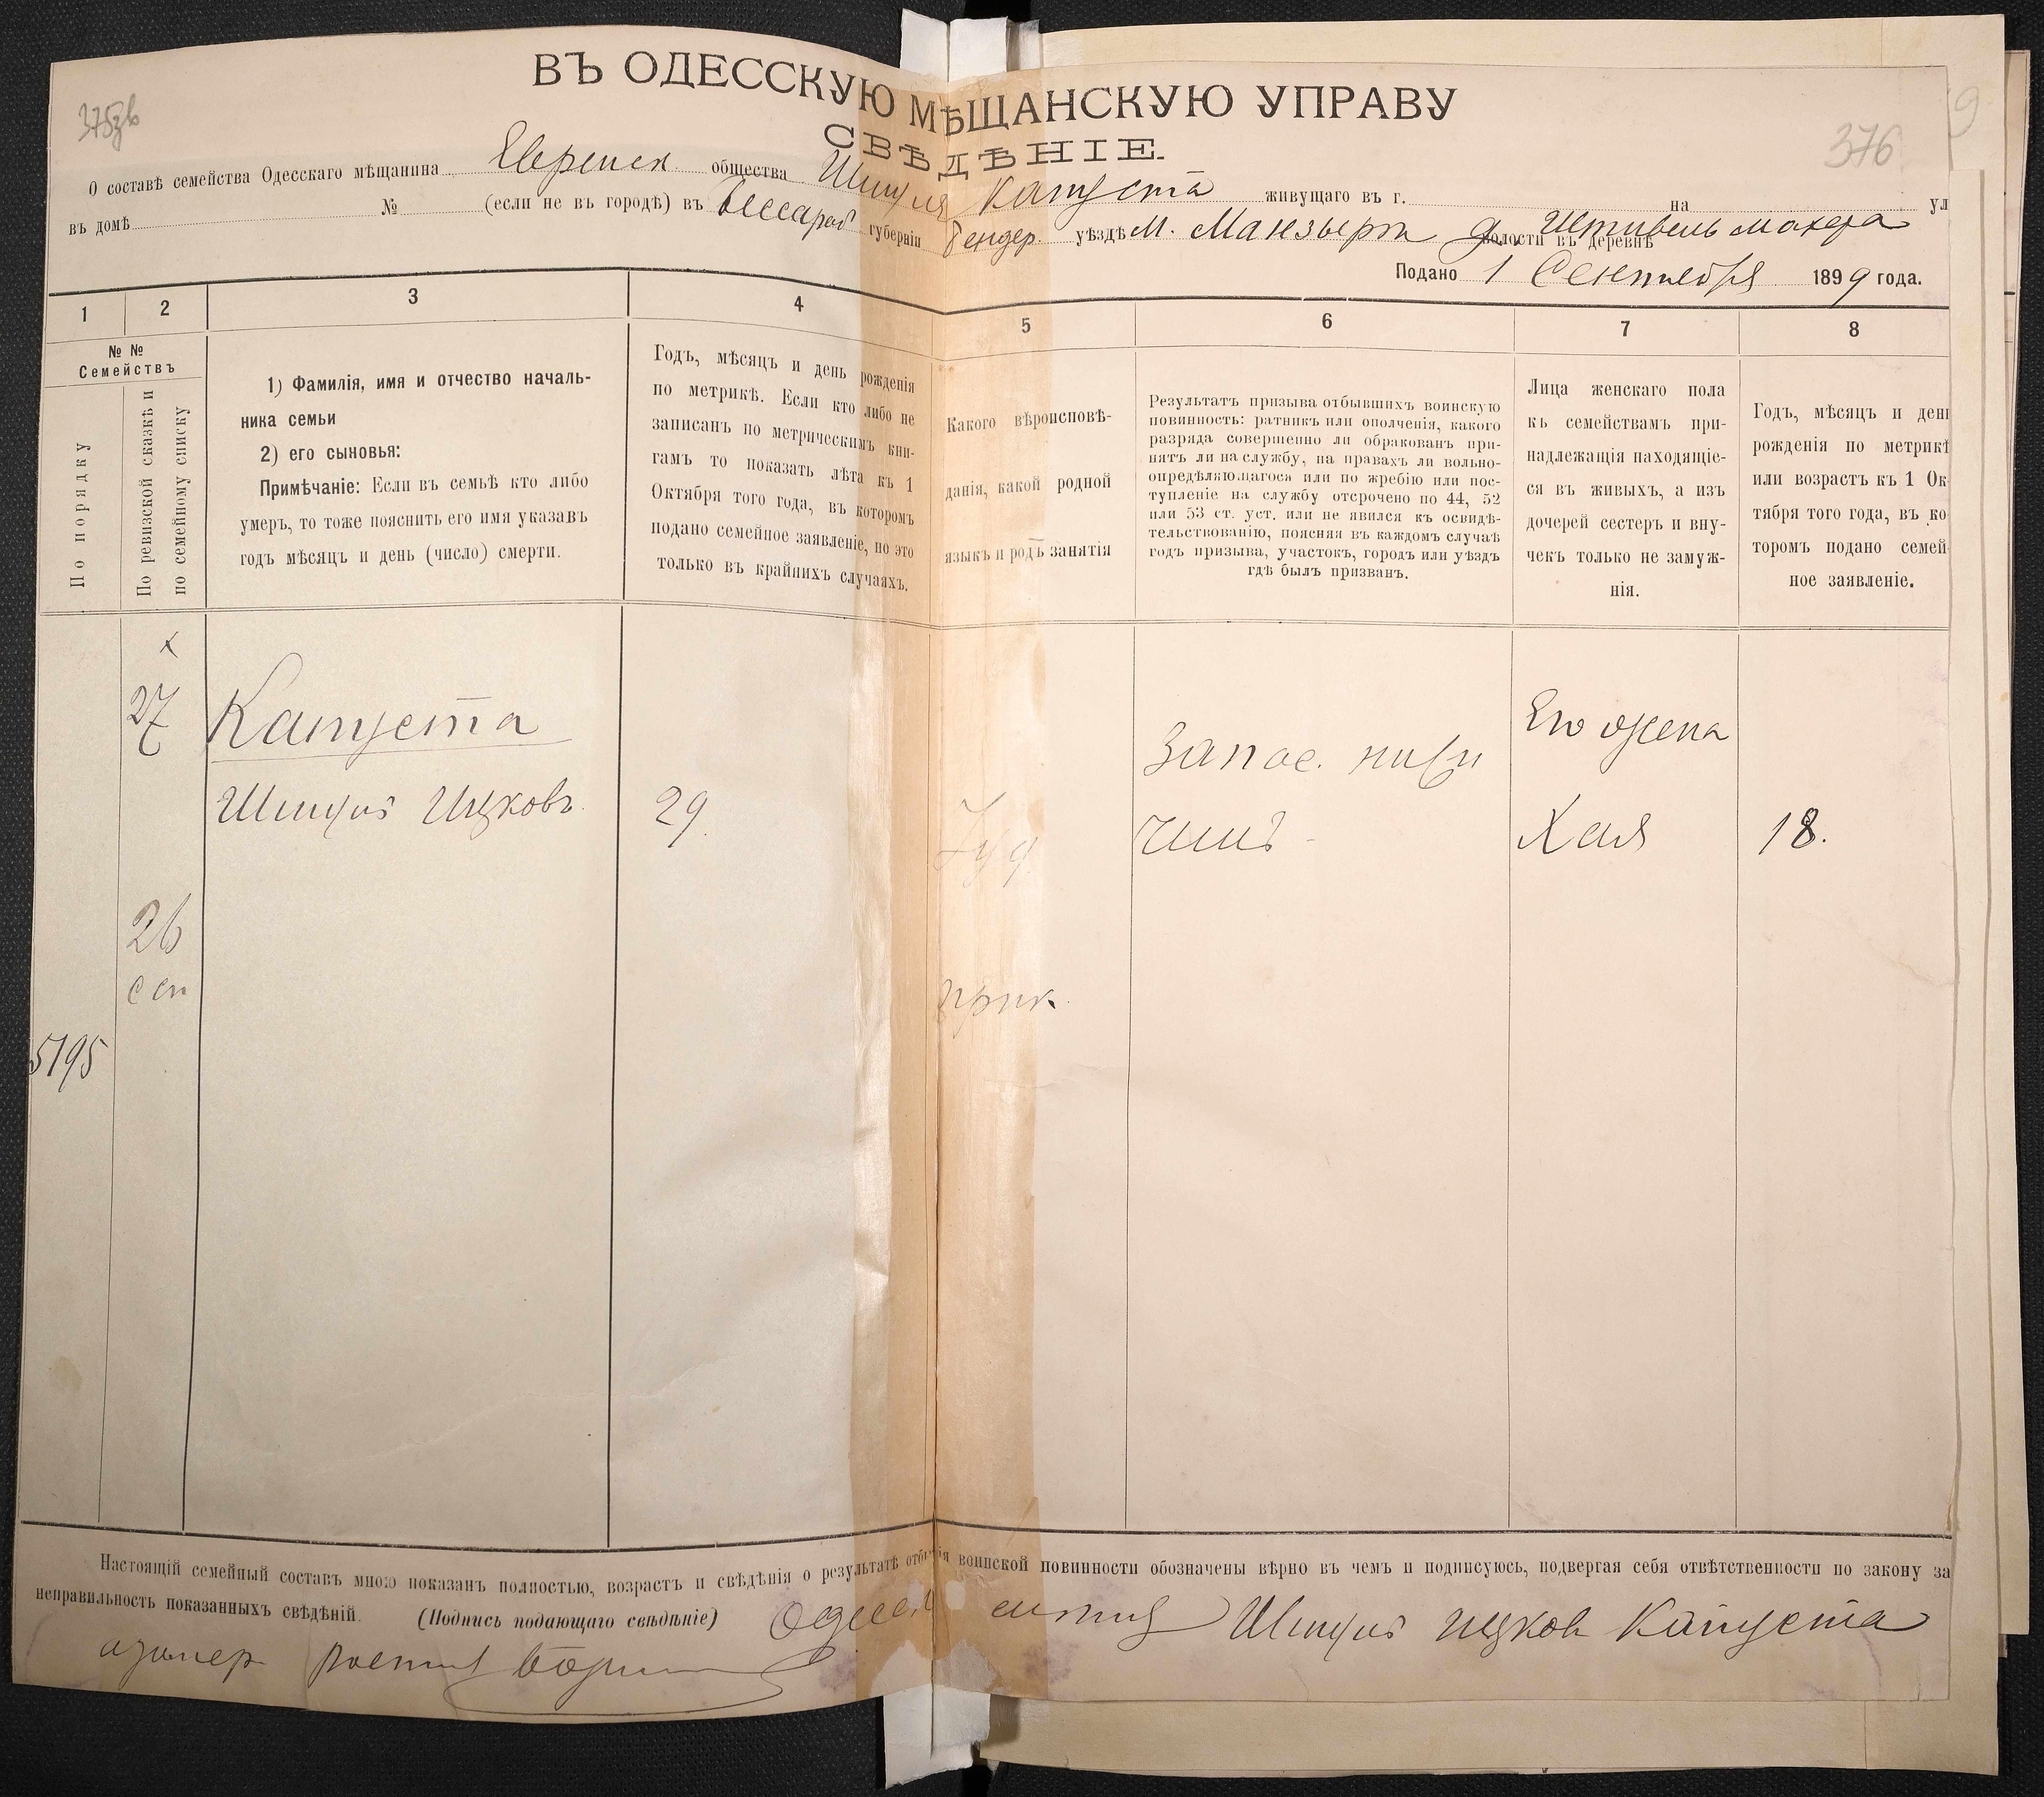 375зв
376
9
ВЪ ОДЕССКУЮ МѢЩАНСКУЮ УПРАВУ
СВѢДѢНІЕ.
О составѣ семейства Одесскаго мѣщанина Еврейск общества Шмуля Капуста живущаго въ г. на ул
въ домѣ № (если не въ городѣ) въ Бессараб губерніи Бендер. уѣздѣ М. Манзырь волости въ деревнѣ д.
Подано 1 Сентября 1899 года.
1 2 3 4 5 6 7 8
№ №
Семействъ
По порядку
По ревизской сказкѣ и
по семейному списку
1) Фамилія, имя и отчество началь-
ника семьи
2) его сыновья:
Примѣчаніе: Если въ семьѣ кто либо
умеръ, то тоже пояснить его имя указавъ
годъ мѣсяцъ и день (число) смерти.
Годъ, мѣсяцъ и день рожденія
по метрикѣ. Если кто либо не
записанъ по метрическимъ кни-
гамъ то показать лѣта къ 1
Октября того года, въ которомъ
подано семейное заявленіе, но это
только въ крайнихъ случаяхъ.
Какого вѣроисповѣ-
данія, какой родной
языкъ и родъ занятія
Результатъ призыва отбывшихъ воинскую
повинность: ратникъ или ополченія, какого
разряда совершенно ли обракованъ при-
нятъ ли на службу, на правахъ ли вольно-
опредѣляющагося или по жребію или пос-
тупленіе на службу отсрочено по 44, 52
или 53 ст. уст. или не явился къ освидѣ-
тельствованію, поясняя въ каждомъ случаѣ
годъ призыва, участокъ, городъ или уѣздъ
гдѣ былъ призванъ.
Лица женскаго пола
къ семействамъ при-
надлежащія находящіе-
ся въ живыхъ, а изъ
дочерей сестеръ и вну-
чекъ только не замуж-
нія.
Годъ, мѣсяцъ и день
рожденія по метрикѣ
или возрастъ къ 1 Ок
тября того года, въ ко
торомъ подано семей
ное заявленіе.
27 Капуста Запас. нижн Его жена
Шмуль Ицковъ. 29. Іуд чинъ Хая 18.
26
сен прик.
5195
Настоящій семейный составъ мною показанъ полностью, возрастъ и свѣдѣнія о результатѣ отбытія воинской повинности обозначены вѣрно въ чемъ и подписуюсь, подвергая себя отвѣтственности по закону за
неправильность показанныхъ свѣдѣній. (Подпись подающаго свѣдѣніе) Шмуль Ицков Капуста